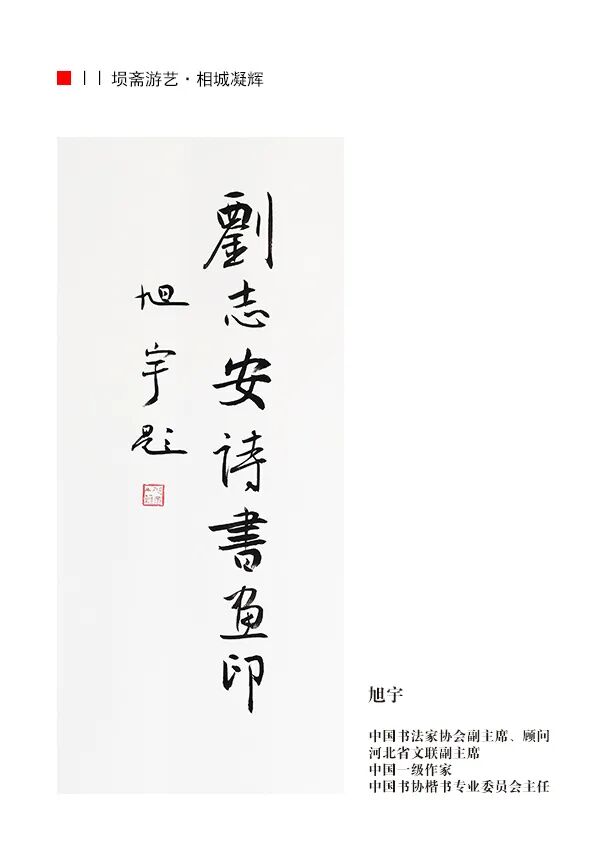 埙斋游艺·相城凝辉
劉志安詩書畫印
旭宇题
旭宇
中国书法家协会副主席、顾问
河北省文联副主席
中国一级作家
中国书协楷书专业委员会主任